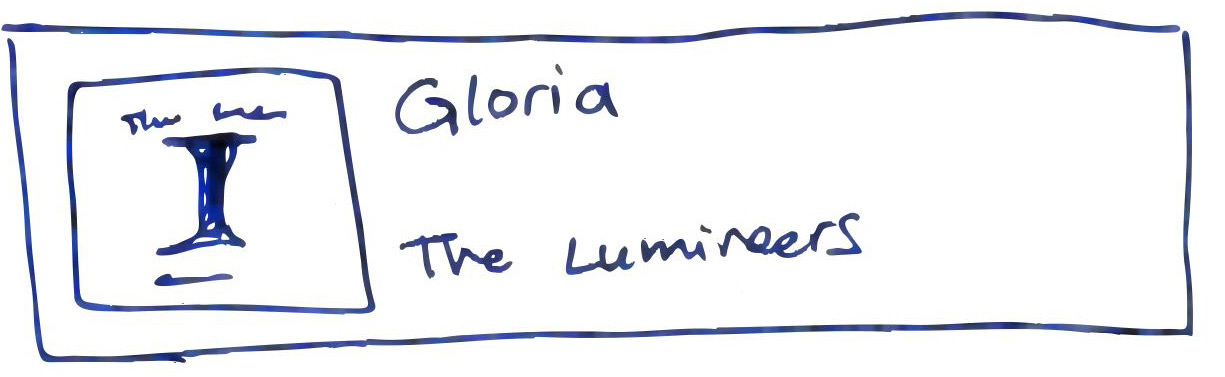 The
I
Gloria
The Lumineers